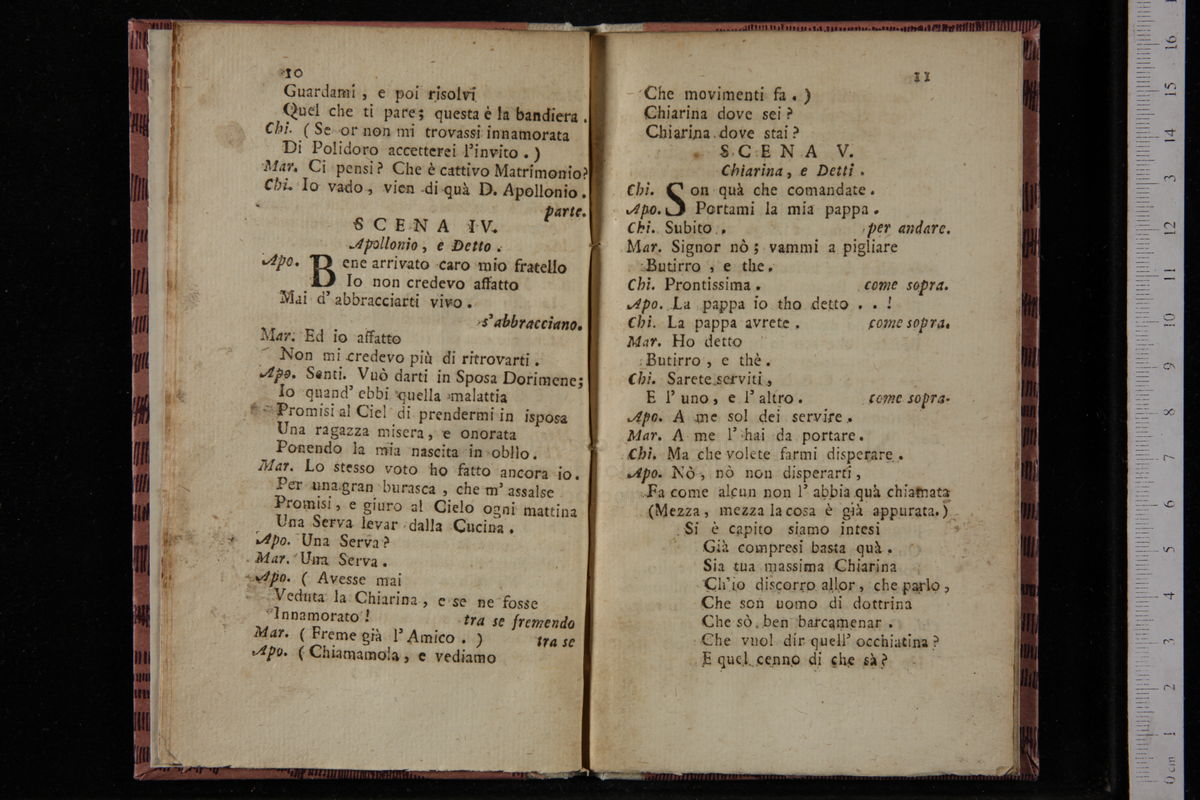 10
Guardami , e poi risolvi
Quel che ti pare; questa è la bandiera .
Chi. ( Se or non mi trovassi innamorata
Di Polidoro accetterei l'invito . )
Mar. Ci pensi ? Che è cattivo Matrimonio?
Chi. Io vado , vien di quà D. Apollonio .
parte.
SCENA IV.
Apollonio , e Detto .
Apo. Bene arrivato caro mio fratello
Io non credevo affatto
Mai d' abbracciarti vivo .
s'abbracciano.
Mar. Ed io affatto
Non mi credevo più di ritrovarti .
Apo. Senti. Vuò darti in Sposa Dorimene;
Io quand' ebbi quella malattia
Promisi al Ciel di prendermi in isposa
Una ragazza misera , e onorata
Ponendo la mia nascita in oblio .
Mar. Lo stesso voto ho fatto ancora io .
Per una gran burasca , che m' assalse
Promisi , e giuro al Cielo ogni mattina
Una Serva levar dalla Cucina .
Apo. Una Serva ?
Mar. Una Serva .
Apo. ( Avesse mai
Veduta la Chiarina , e se ne fosse
Innamorato ! tra se fremendo
Mar. ( Freme già l' Amico . ) tra se
Apo. ( Chiamamola , e vediamo
11
Che movimenti fa . )
Chiarina dove sei ?
Chiarina dove stai ?
SCENA V.
Chiarina , e Detti .
Chi. Son quà che comandate .
Apo. Portami la mia pappa .
Chi. Subito . per andare.
Mar. Signor nò ; vammi a pigliare
Butirro , e the .
Chi. Prontissima . come sopra.
Apo. La pappa io tho detto . . !
Chi. La pappa avrete . come sopra.
Mar. Ho detto
Butirro , e thè .
Chi. Sarete serviti ,
E l' uno , e l' altro . come sopra.
Apo. A me sol dei servire .
Mar. A me l' hai da portare .
Chi. Ma che volete farmi disperare .
Apo. Nò , nò non disperarti ,
Fa come alcun non l' abbia quà chiamata
(Mezza , mezza la cosa è già appurata.)
Si è capito siamo intesi
Già compresi basta quà .
Sia tua massima Chiarina
Ch'io discorro allor , che parlo ,
Che son uomo di dottrina
Che sò ben barcamenar .
Che vuol dir quell' occhiatina ?
E quel cenno di che sà ?